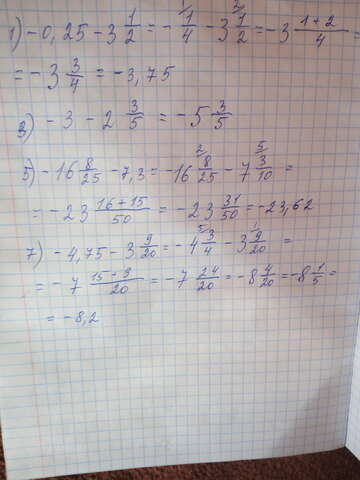 1) -0,25 - 3 1/2 = - 1/4 - 3 1/2 = -3 (1+2)/4 =
= -3 3/4 = -3,75
3) -3 - 2 3/5 = -5 3/5
5) -16 8/25 - 7,3 = -16 8/25 - 7 3/10 =
= -23 (16+15)/50 = -23 31/50 = -23,62
7) -4,75 - 3 9/20 = -4 3/4 - 3 9/20 =
= -7 (15+9)/20 = -7 24/20 = -8 4/20 = -8 1/5 =
= -8,2